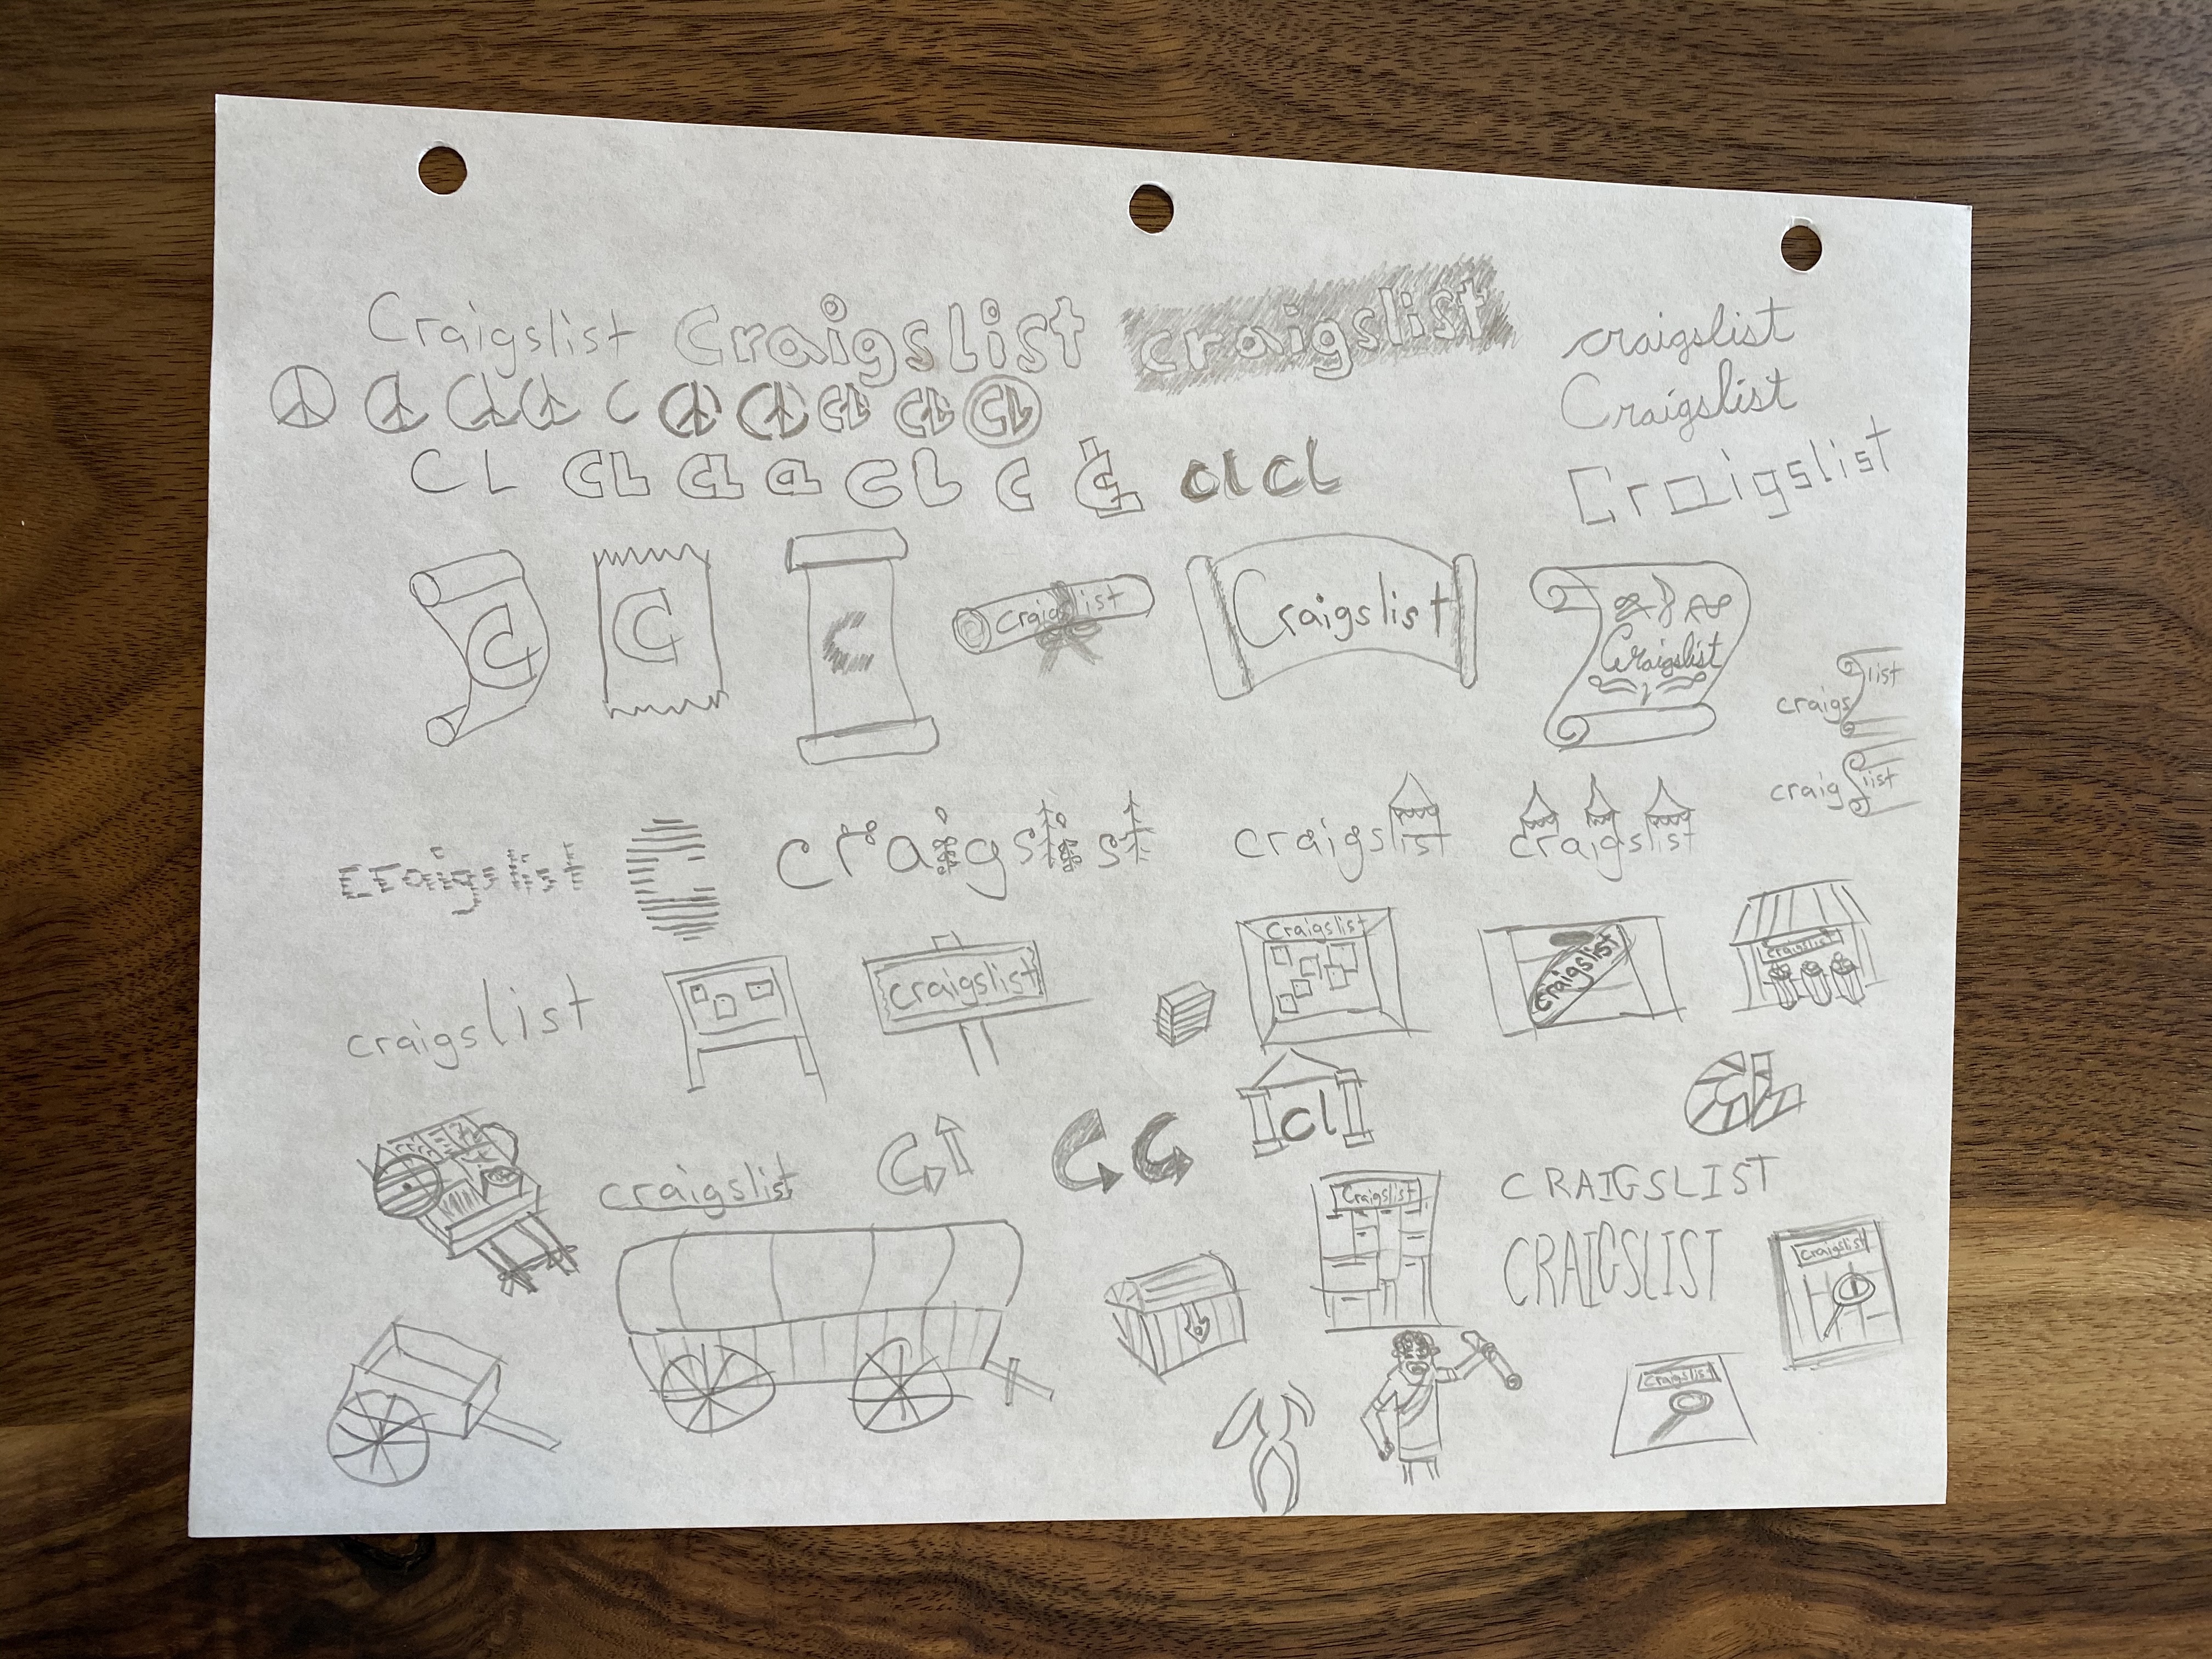 Craigslist Craigslist craigslist craigslist
Craigslist
C CL CL CL
C L CL CL CL CL C CL cl cl
Craigslist
C C C Craigslist Craigslist Craigslist
craigs list
craigs list
craigslist C craigslist craigslist craigslist
craigslist craigslist Craigslist craigslist craigslist
cl CL
craigslist C C C Craigslist CRAIGSLIST
CRAIGSLIST Craigslist
Craigslist